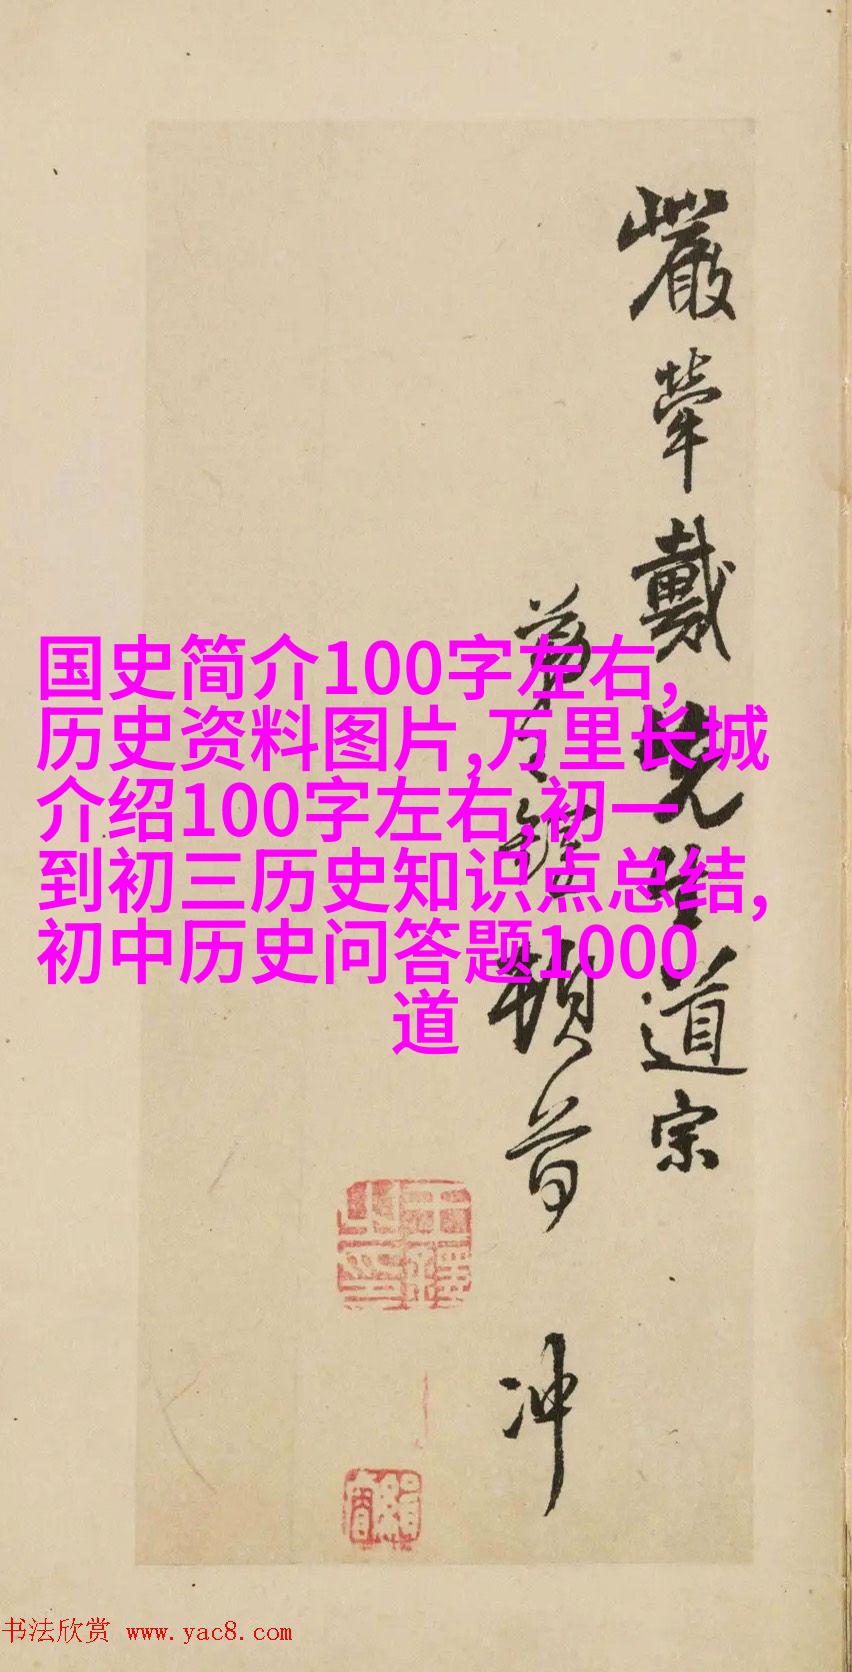 国史简介100字左右,
历史资料图片,万里长城
介绍100字左右,初一
到初三历史知识点总结,
初中历史问答题1000
道
嚴犖戴先生道宗
頓首
冲
书法欣赏 www.yac8.com